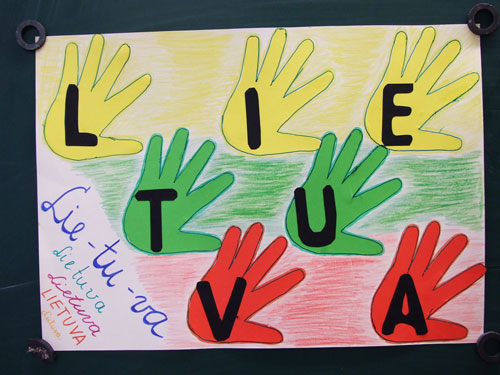 LIE
TU
VA
Lie-tu-va
Lietuva
Lietuva
LIETUVA